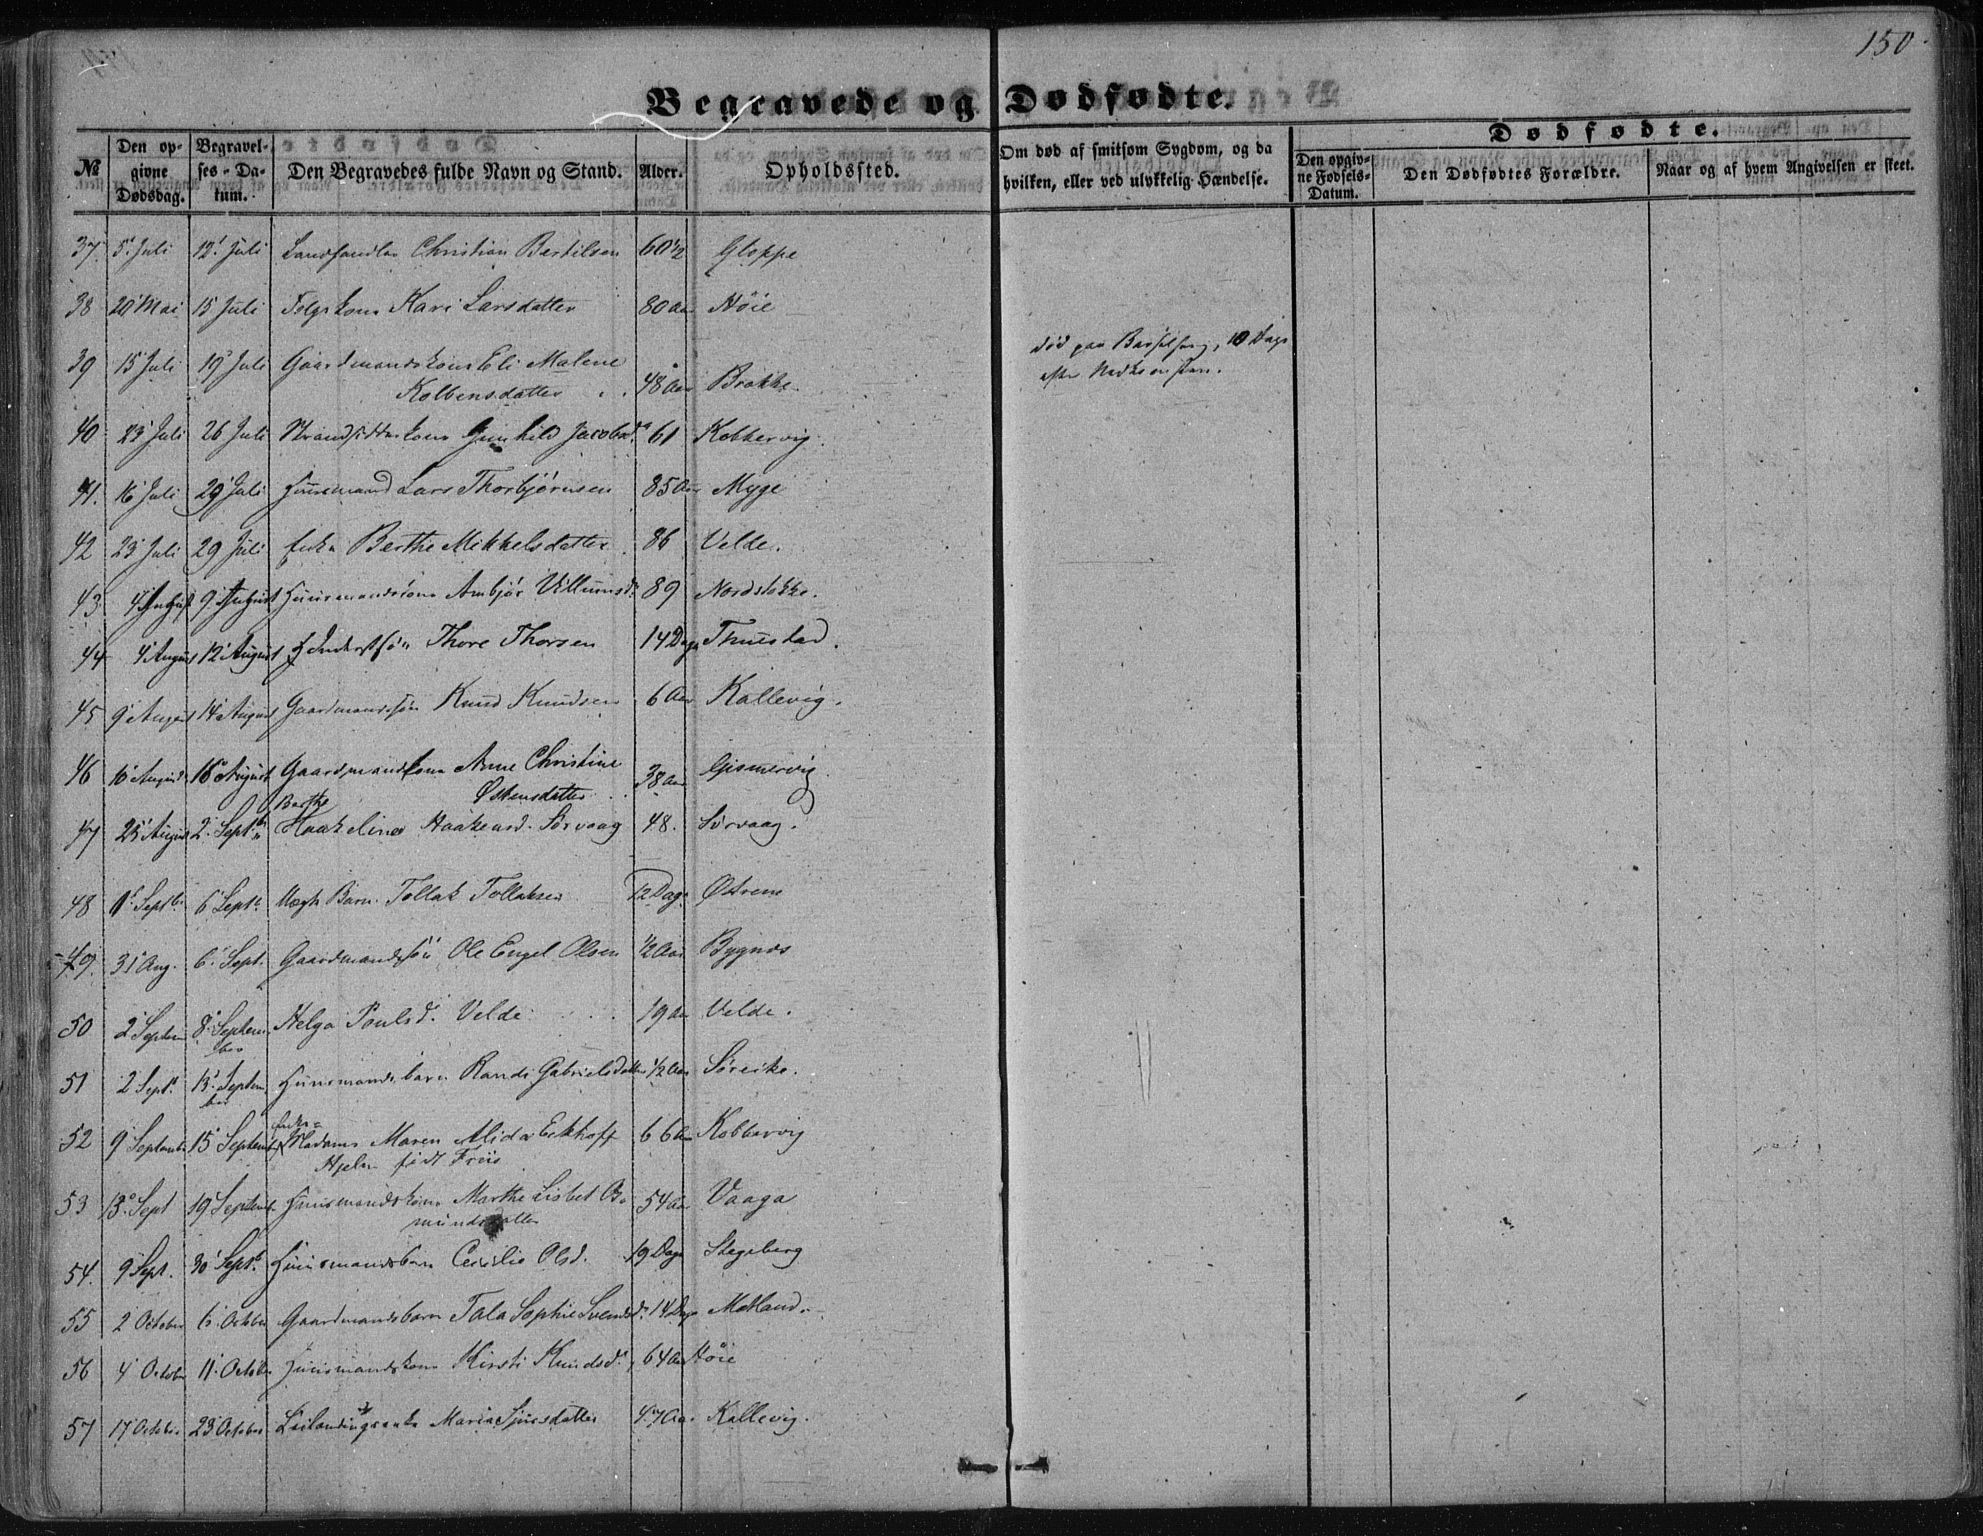 150
Begravede og Dødfødte.
№ | Den opgivne Dødsdag. | Begravelses-Datum. | Den Begravedes fulde Navn og Stand. | Alder. | Opholdssted. | Om død af smitsom Sygdom, og da hvilken, eller ved ulykkelig Hændelse. | Dødfødte. | Den opgivne Fødsels-Datum. | Den Dødfødtes Forældre. | Naar og af hvem Angivelsen er skeet.
37 5' Juli 12' Juli Christian Bertilsen 60 1/2 Gloppe
38 20 Mai 15 Juli Kari Larsdatter 80 Aar Høie
39 15 Juli 19' Juli Gaardmandskone Eli Malene
Kolbensdatter 48 Aar Brekke. død paa Barselseng, 10 Dage
efter
40 23' Juli 26 Juli Strandsidderkone Gunhild Jacobsd. 61 Kobbervig.
41. 16' Juli 29' Juli Huusmand Lars Thorbjørnsen 85 Aar Myge
42 23' Juli 29' Juli Enke Berthe Mikkelsdatter 86 Velde.
43 4' August 9' August Huusmandskone Anbjør Villumsd. 89 Nordstokke.
44 4' August 12' August Thore Thorsen 14 Dage Thuestad.
45 9' August 14' August Gaardmandssøn Knud Knudsen 6 Aar Kallevig.
46 10' August 16' August Gaardmandskone Anne Christine
Østensdatter 38 Aar Gismervig
Berthe
47 25' August 2' Septbr Haakeline Haakensd. Sørvaag 48. Sørvaag.
48 1' Septbr. 6' Septbr. Barn Tollak Tollaksen 12 Dage Østrem
49. 31' Aug. 6' Sept. Gaardmandssøn Ole Engel Olsen 1/2 Aar Bygnes
50 2' Septem 8' Septem
ber Helga Poulsd. Velde 19 Aar Velde.
51 2' Sept. 13' Septem
ber Huusmandsbarn Randi Gabrielsdatter 1/2 Aar Søreike.
Enke-
52 9' September 15' September Madame Maren Alida Eckhoff
Hjelm født Friis 66 Aar Kobbervig
53 13' Sept 19 September Huusmandskone Marthe Lisbet Os-
mundsdatter 54 Aar Vaaga
54. 9' Sept. 30' Septb. Huusmandsbarn Cecilie Olsd. 19 Dage Stegeberg
55 2' October 6' October Gaardmandsbarn Tala Sophie Svendsd. 14 Dage Matland.
56 4' October 11' October Huusmandskone Kirsti Knudsd. 64 Aar Høie
57 17' October 23' October Leilændingsenke Maria Sjursdatter 47 Aar Kallevig.